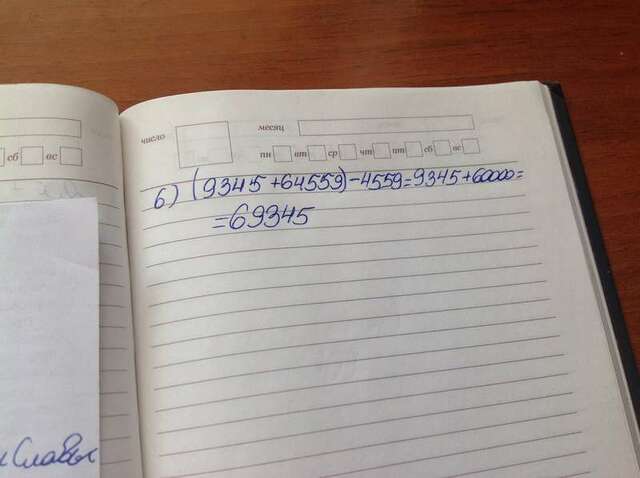 сб вс
число месяц
пн вт ср чт пт сб вс
б) (9345+64559)-4559=9345+60000=
=69345
Славы